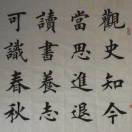 觀史知今
當思進退
讀書養志
可識春秋